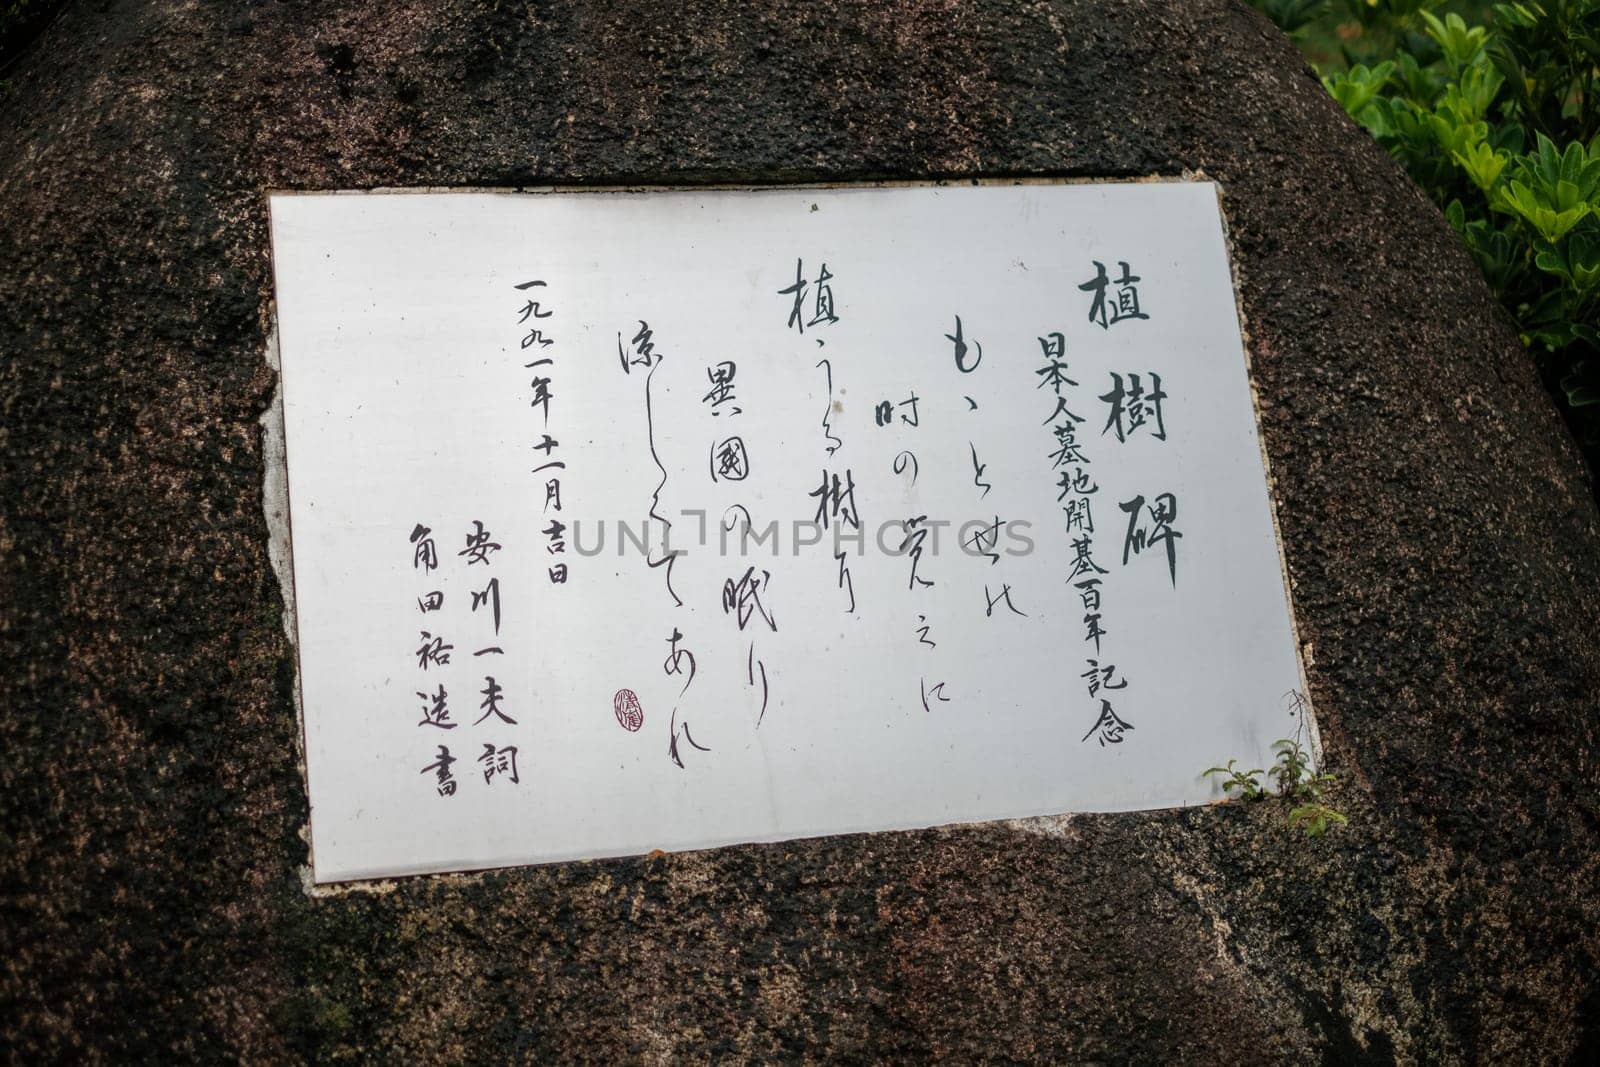 植樹碑
日本人墓地開基百年記念
もゝとせの
時の覚えに
植ゝうる樹り
異國の眠り
涼しくてあれ
一九九一年十一月吉日
安川一夫詞
角田裕造書
UNLIMPHOTOS